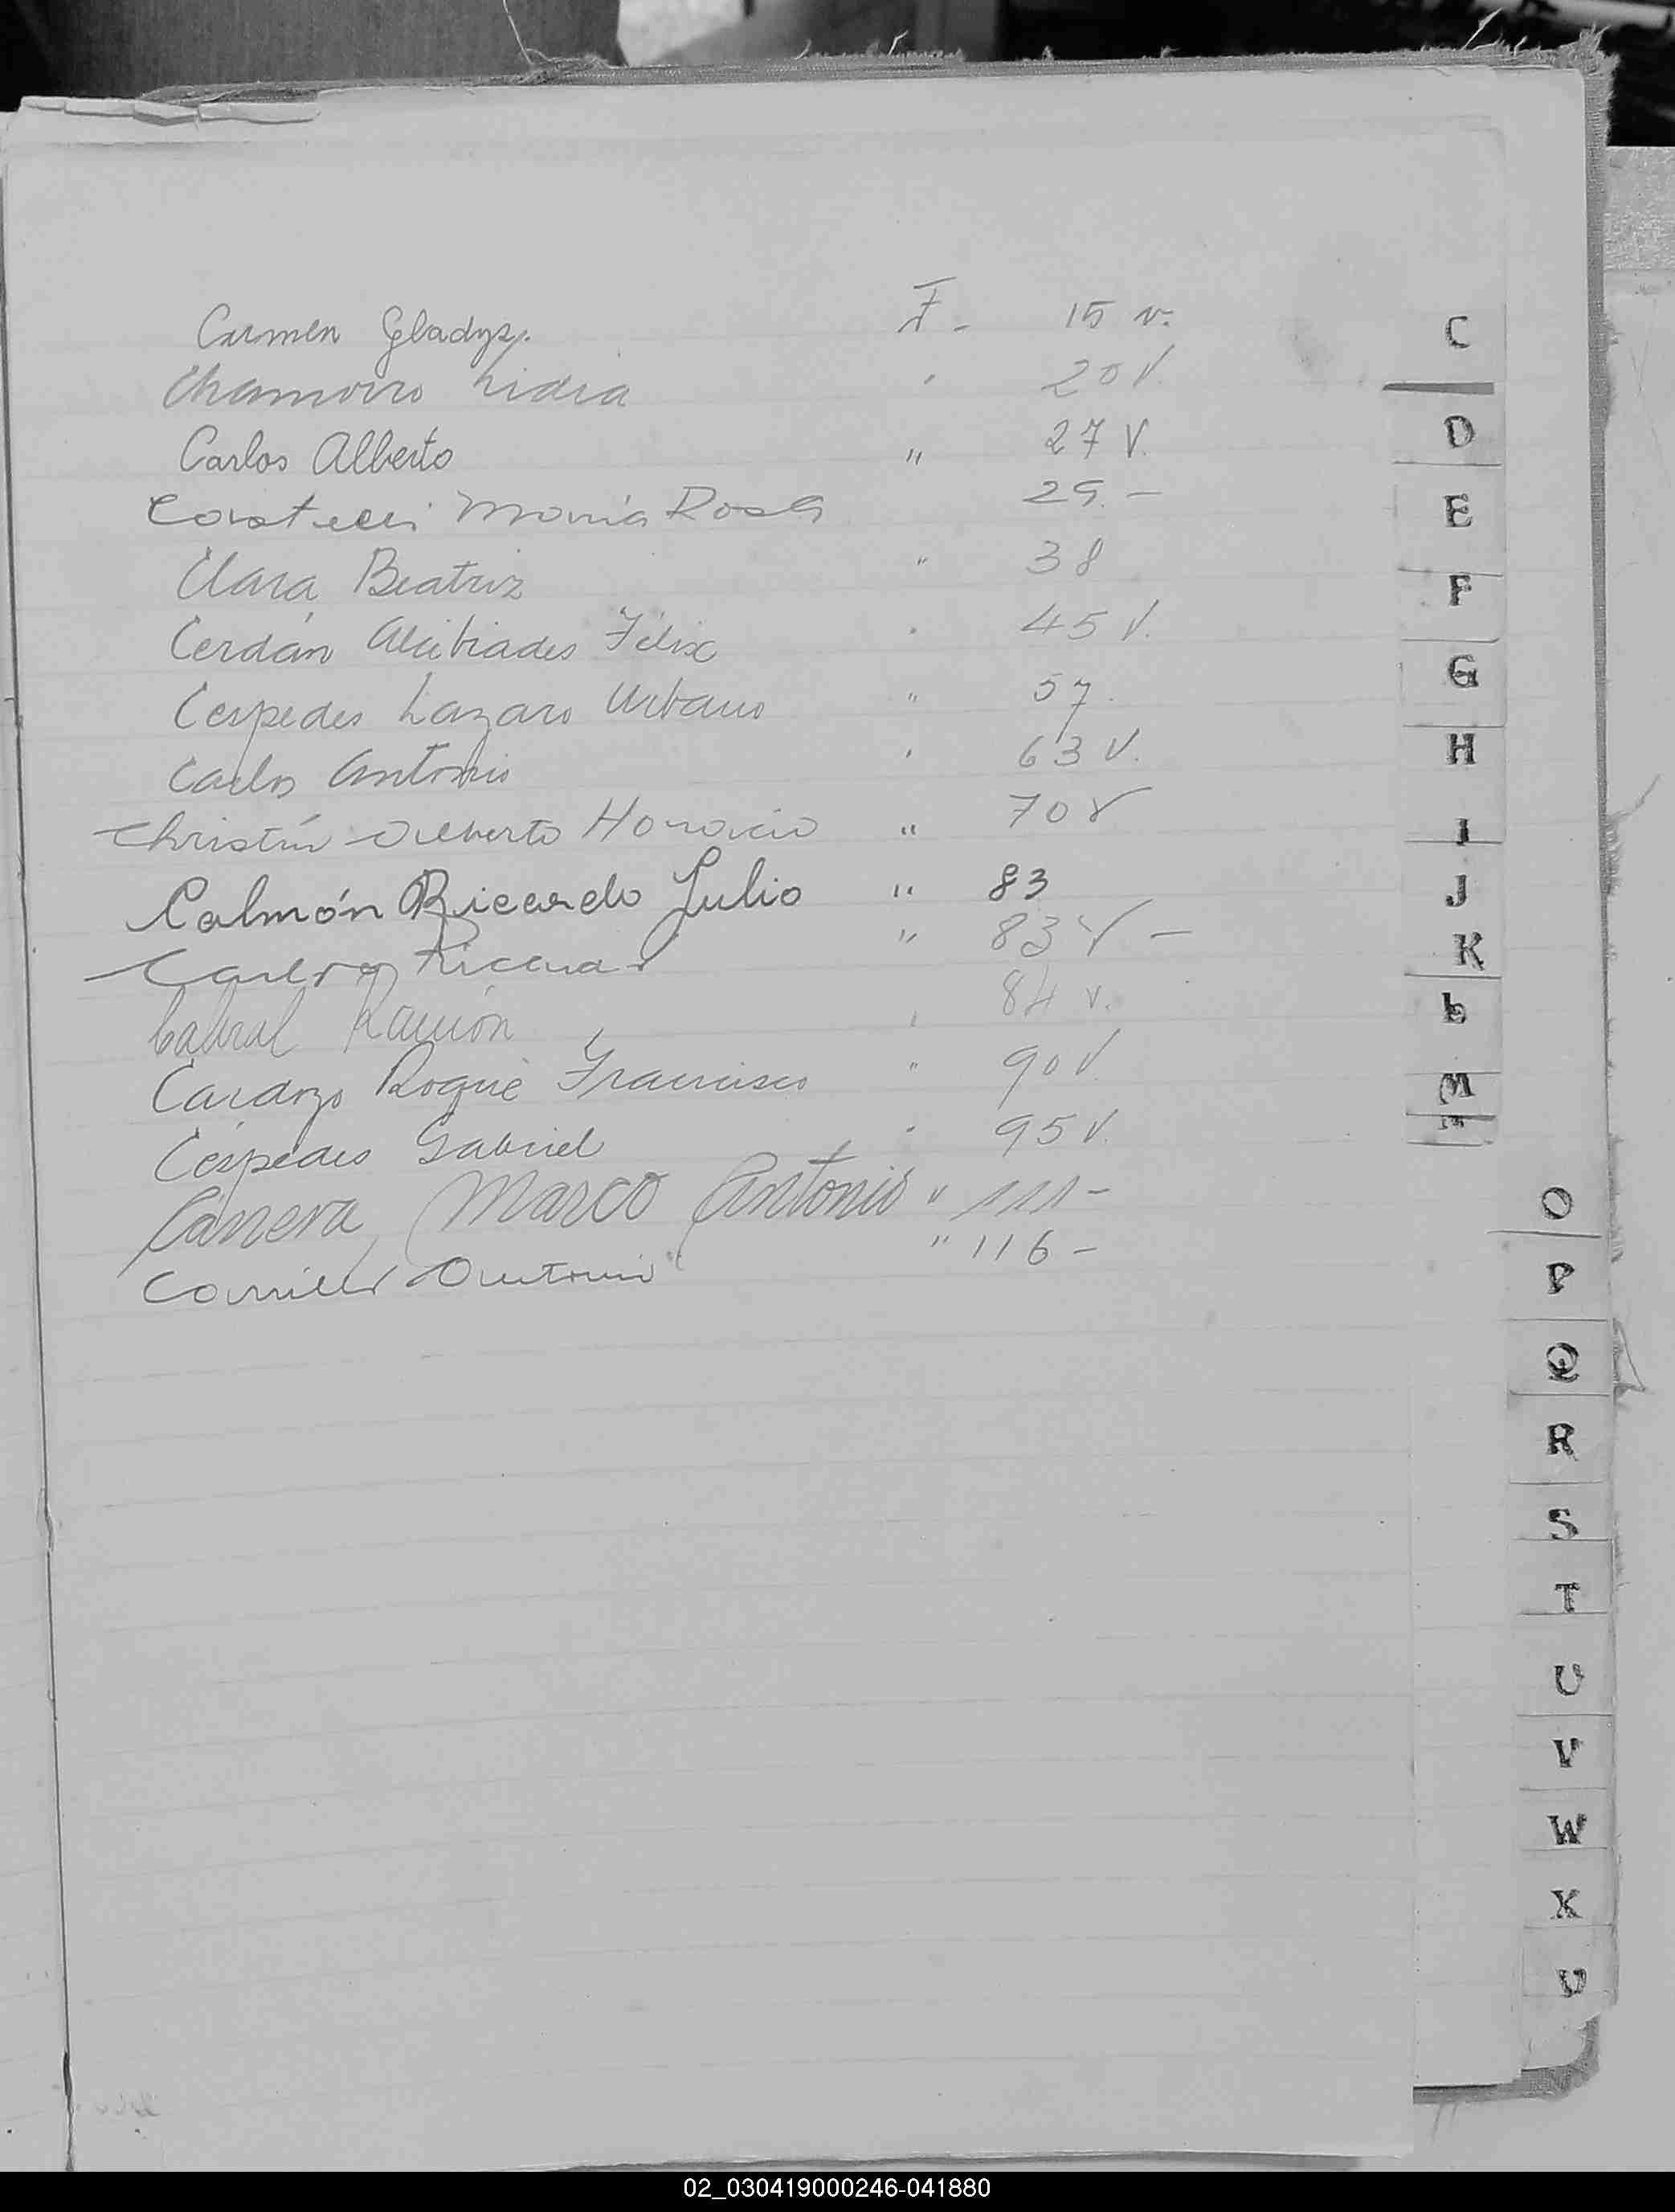 Carmen Gladys. F. - 15 v.
Chamorro Lidia " 20 V.
Carlos Alberto " 27 V.
Castelli María Rosa 29. -
Clara Beatriz " 38
Cerdán Alcibiades Félix " 45 V.
Cespedes Lazaro Urbano " 57.
Carlos Antonio " 63 V.
Christín Alberto Horacio " 70 V
Calmón Ricardo Julio " 83
Carlos Ricard " 83 V -
Cabral Ramón " 84 v.
Cardozo Roque Francisco " 90 V
Céspedes Gabriel " 95 V.
Carrera, Marco Antonio " 111 -
Carrillo Antonio " 116 -
C
D
E
F
G
H
I
J
K
L
M
O
P
Q
R
S
T
U
V
W
X
02_030419000246-041880